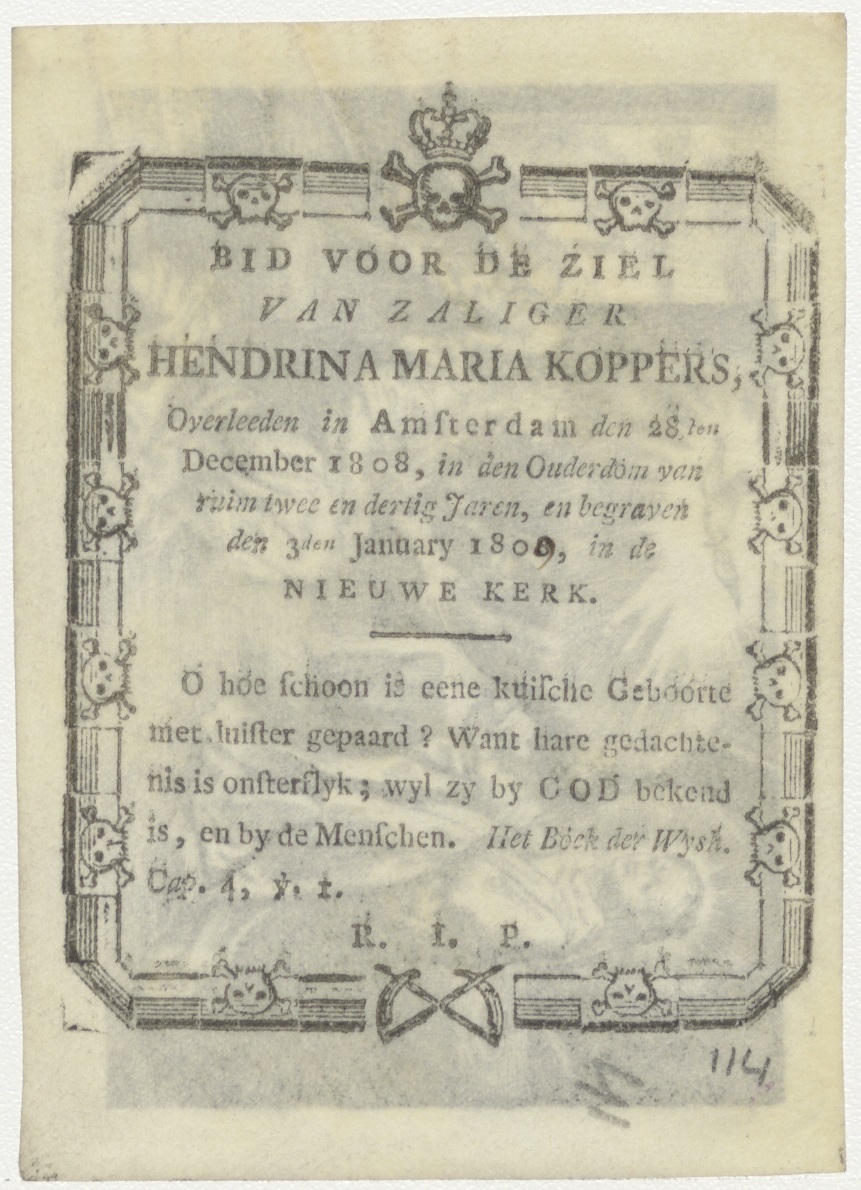 BID VOOR DE ZIEL
VAN ZALIGER
HENDRINA MARIA KOPPERS,
Overleeden in Amſterdam den 28ſten
December 1808, in den Ouderdom van
ruim twee en dertig Jaren, en begraven
den 3den January 1809, in de
NIEUWE KERK.
O hoe ſchoon is eene kuiſche Geboorte
met luiſter gepaard? Want hare gedachte-
nis is onſterflyk; wyl zy by GOD bekend
is, en by de Menſchen. Het Boek der Wysh.
Cap. 4, ỳ. 1.
R. I. P.
114